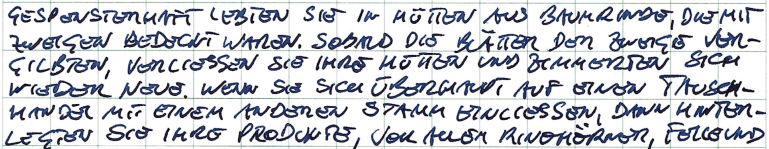 GESPENSTERHAFT LEBTEN SIE IN HÜTTEN AUS BAUMRINDE, DIE MIT
ZWEIGEN BEDECKT WAREN. SOBALD DIE BLÄTTER DER ZWEIGE VER-
GILBTEN, VERLIESSEN SIE IHRE HÜTTEN UND ZIMMERTEN SICH
WIEDER NEUE. WENN SIE SICH ÜBERHAUPT AUF EINEN TAUSCH-
HANDEL MIT EINEM ANDEREN STAMM EINLIESSEN, DANN HINTER-
LEGTEN SIE IHRE PRODUKTE, VOR ALLEM RINDEHÖRNER, FELLE UND